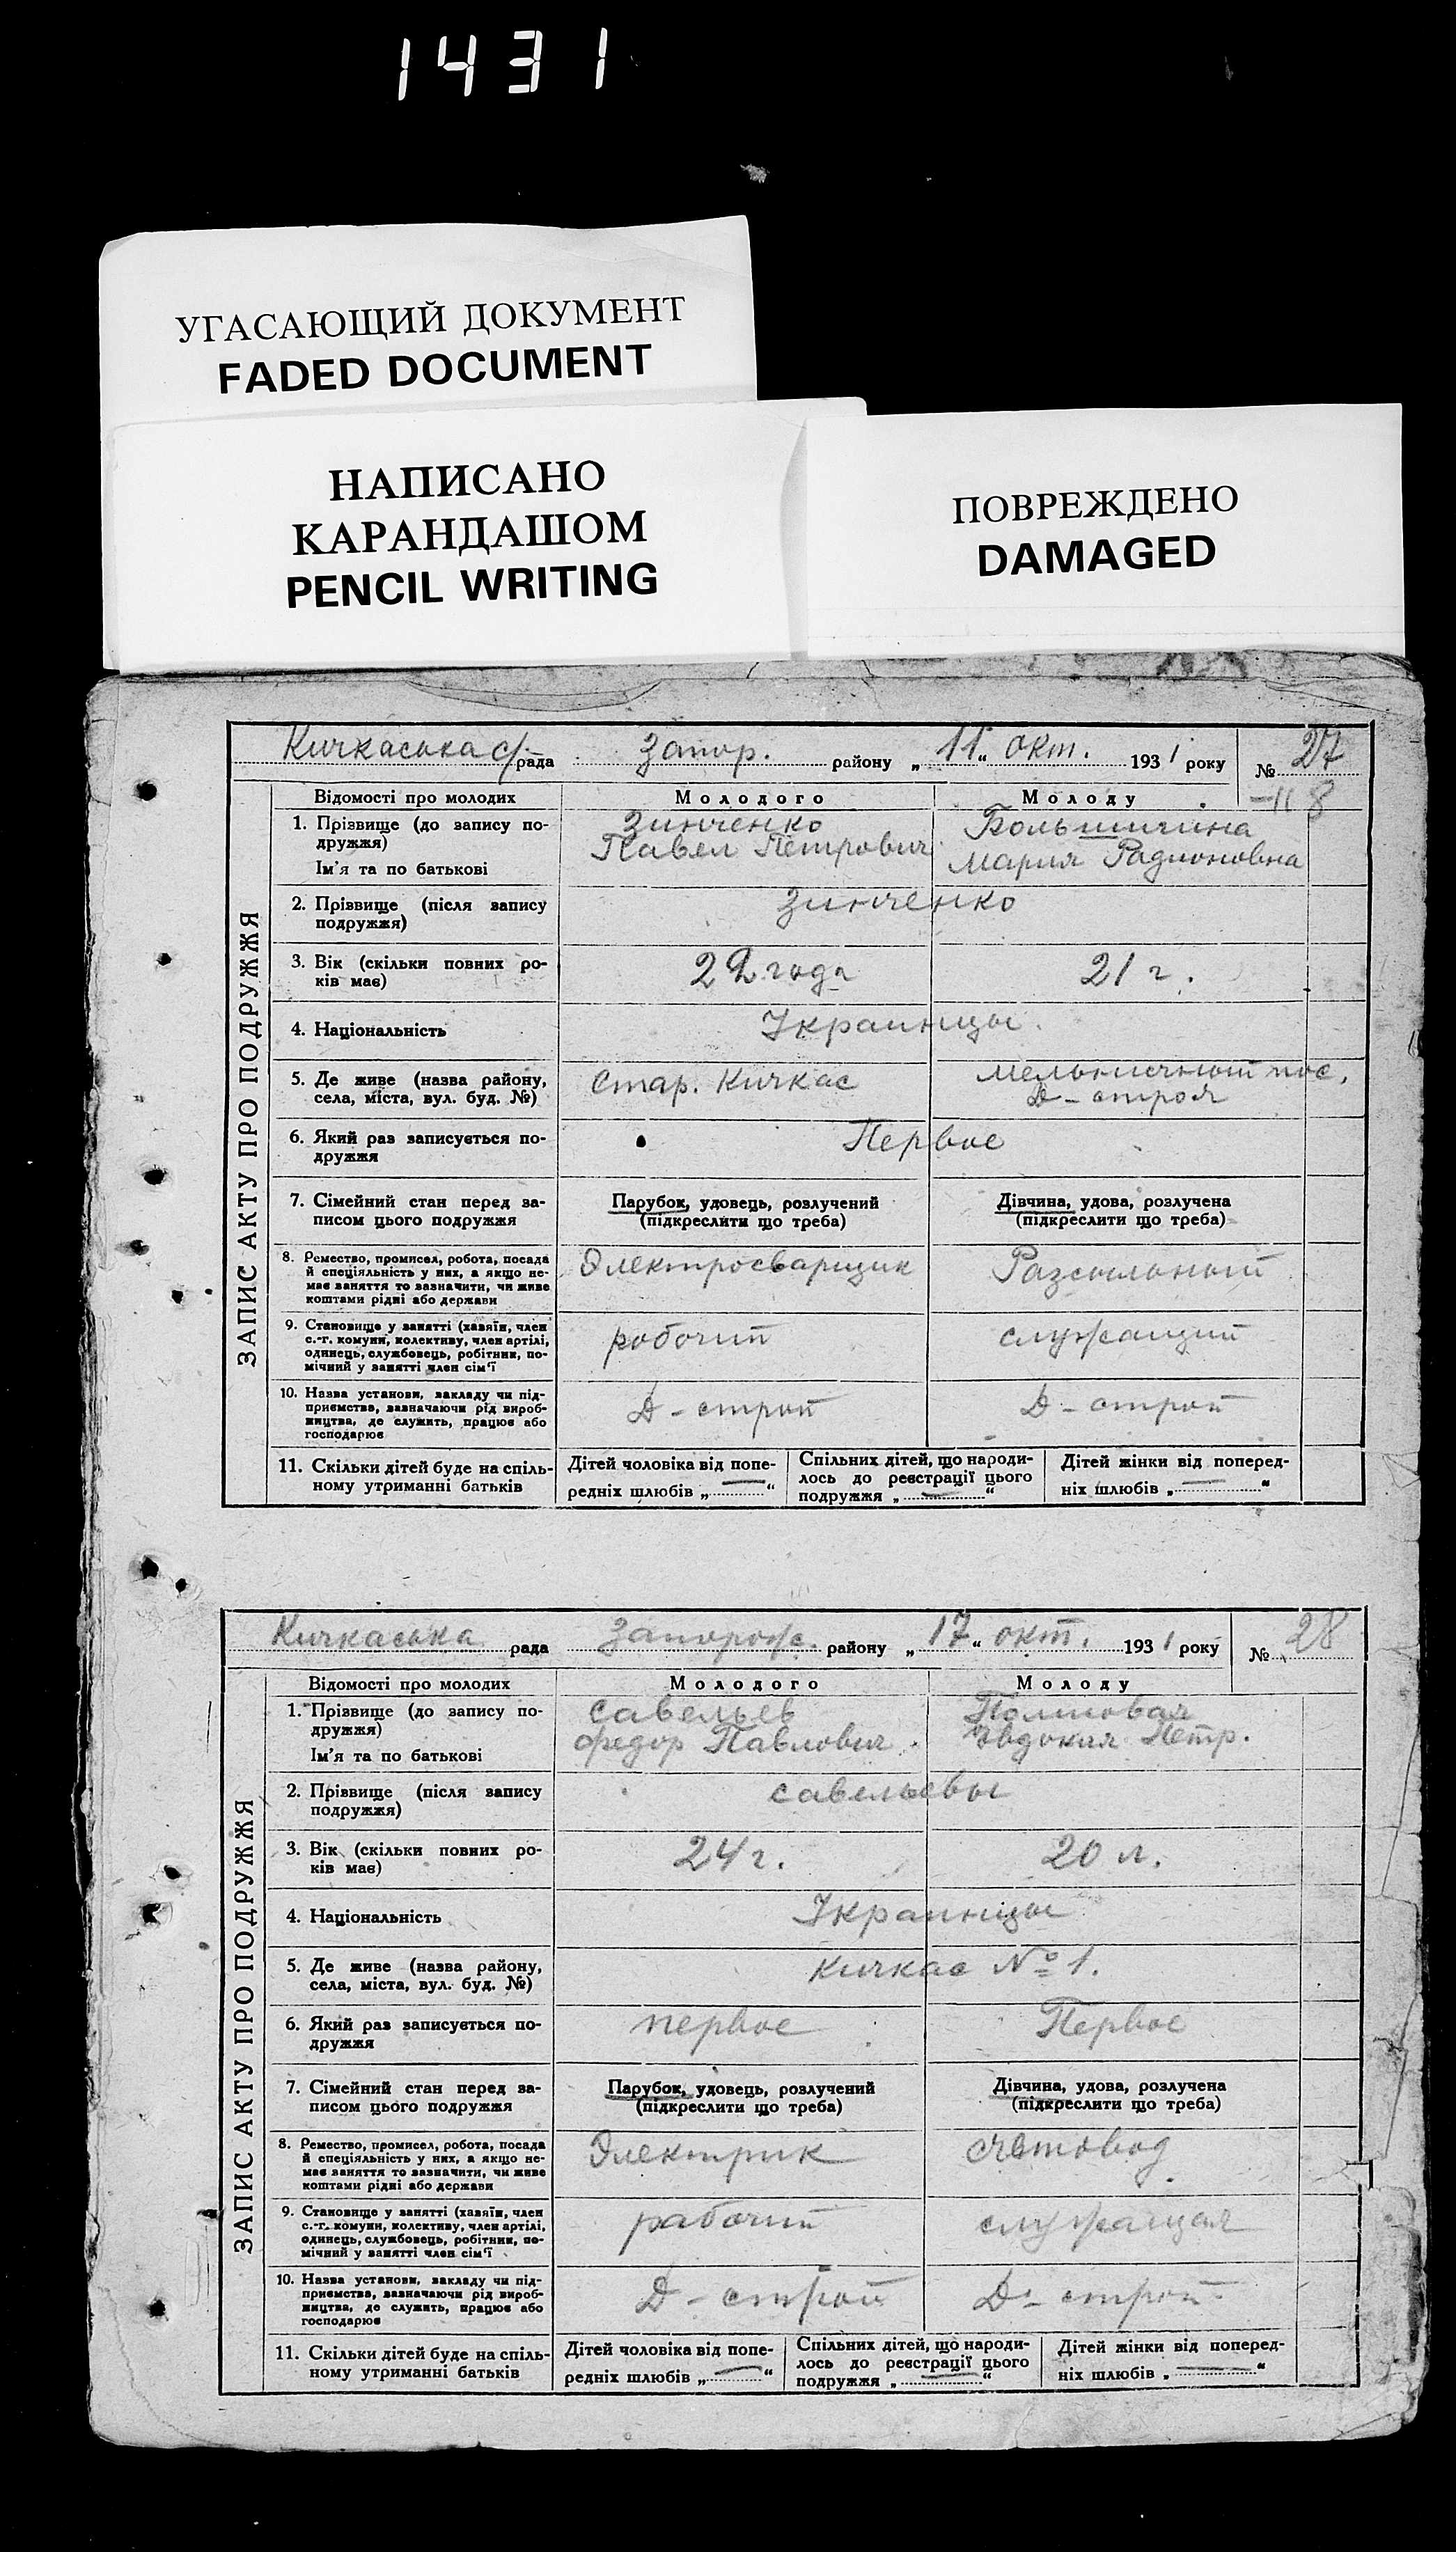 1431
УГАСАЮЩИЙ ДОКУМЕНТ
FADED DOCUMENT
НАПИСАНО
КАРАНДАШОМ
PENCIL WRITING
ПОВРЕЖДЕНО
DAMAGED
ЗАПИС АКТУ ПРО ПОДРУЖЖЯ
Кичкаська с/рада Запор. району „11“ окт. 1931 року № 27
Відомості про молодих Молодого Молоду
1. Прізвище (до запису по- Зинченко
дружжя) Павел Петрович Мария Радионовна
Ім'я та по батькові
2. Прізвище (після запису Зинченко
подружжя)
3. Вік (скільки повних ро- 22 года 21 г.
ків має)
4. Національність Украинцы.
5. Де живе (назва району, Стар. Кичкас мельничный пос.
села, міста, вул. буд. №) Д-строя
6. Який раз записується по- Первое
дружжя
7. Сімейний стан перед за- Парубок, удовець, розлучений Дівчина, удова, розлучена
писом цього подружжя (підкреслити що треба) (підкреслити що треба)
8. Ремество, промисел, робота, посада Электросварщик Разсыльный
й спеціяльність у них, а якщо не-
має заняття то зазначити, чи живе
коштами рідні або держави
9. Становище у занятті (хазяїн, член рабочий служащий
с.-г. комуни, колективу, член артілі,
одинець, службовець, робітник, по-
мічний у занятті член сім'ї
10. Назва установи, закладу чи під- Д-строй Д-строй
приємства, зазначаючи рід вироб-
ництва, де служить, працює або
господарює
11. Скільки дітей буде на спіль- Дітей чоловіка від попе- Спільних дітей, що народи- Дітей жінки від поперед-
ному утриманні батьків редніх шлюбів „—“ лось до реєстрації цього ніх шлюбів „—“
подружжя „—“
ЗАПИС АКТУ ПРО ПОДРУЖЖЯ
Кичкаська рада Запорож. району „17“ окт. 1931 року № 28
Відомості про молодих Молодого Молоду
1. Прізвище (до запису по- Савельев
дружжя) Федор Павлович Евдокия Петр.
Ім'я та по батькові
2. Прізвище (після запису савельевы
подружжя)
3. Вік (скільки повних ро- 24 г. 20 л.
ків має)
4. Національність Украинцы
5. Де живе (назва району, Кичкас № 1.
села, міста, вул. буд. №)
6. Який раз записується по- первое Первое
дружжя
7. Сімейний стан перед за- Парубок, удовець, розлучений Дівчина, удова, розлучена
писом цього подружжя (підкреслити що треба) (підкреслити що треба)
8. Ремество, промисел, робота, посада Электрик счетовод
й спеціяльність у них, а якщо не-
має заняття то зазначити, чи живе
коштами рідні або держави
9. Становище у занятті (хазяїн, член рабочий служащая
с.-г. комуни, колективу, член артілі,
одинець, службовець, робітник, по-
мічний у занятті член сім'ї
10. Назва установи, закладу чи під- Д-строй Д-строй
приємства, зазначаючи рід вироб-
ництва, де служить, працює або
господарює
11. Скільки дітей буде на спіль- Дітей чоловіка від попе- Спільних дітей, що народи- Дітей жінки від поперед-
ному утриманні батьків редніх шлюбів „—“ лось до реєстрації цього ніх шлюбів „—“
подружжя „—“